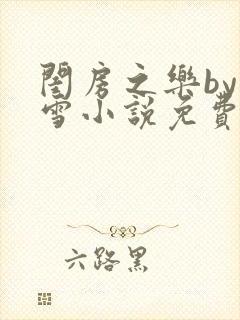 閨房之樂by
雪小說免費
六路黑